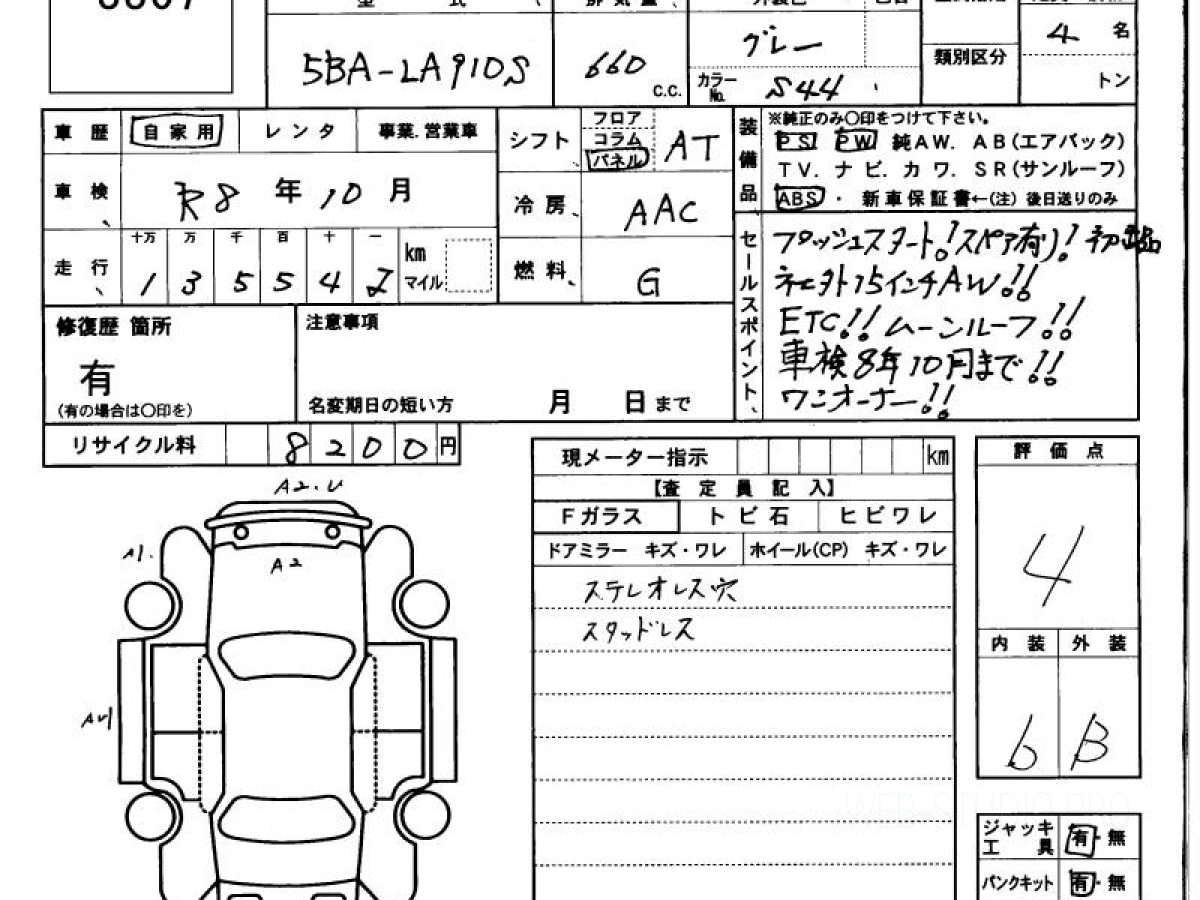 5BA-LA910S
660
c.c.
グレー
カラーNo. S44
類別区分
4 名
トン
車歴 自家用 レンタ 事業.営業車
車検 R8年10月
走行 十万 万 千 百 十 一
1 3 5 5 4 2
km
マイル
シフト フロア コラム パネル AT
冷房 AAC
燃料 G
装備品
※純正のみ〇印をつけて下さい。
PS PW 純AW. AB(エアバック)
TV. ナビ. カワ. SR(サンルーフ)
ABS ・ 新車保証書←(注) 後日送りのみ
セールスポイント
プッシュスタート!スペア有り!
15インチAW!!
ETC!! ムーンルーフ!!
車検8年10月まで!!
ワンオーナー!!
修復歴 箇所
有
(有の場合は〇印を)
注意事項
名変期日の短い方 月 日まで
リサイクル料 8200円
現メーター指示 km
【査定員記入】
Fガラス トビ石 ヒビワレ
ドアミラー キズ・ワレ ホイール(CP) キズ・ワレ
ステレオレス穴
スタッドレス
評価点
4
内装 外装
b B
ジャッキ工具 有・無
パンクキット 有・無
A2.U
A1.
A2
WEB-STUDIO.PRO